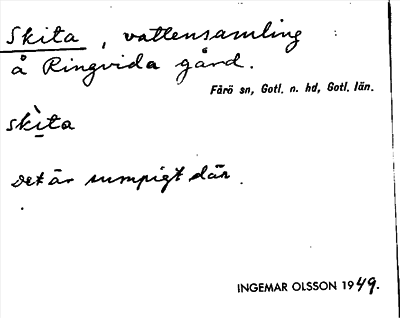 Skita, vattensamling
å Ringvida gård.
Fårö sn, Gotl. n. hd, Gotl. län.
skì̱ta
Det är sumpigt där.
INGEMAR OLSSON 1949.